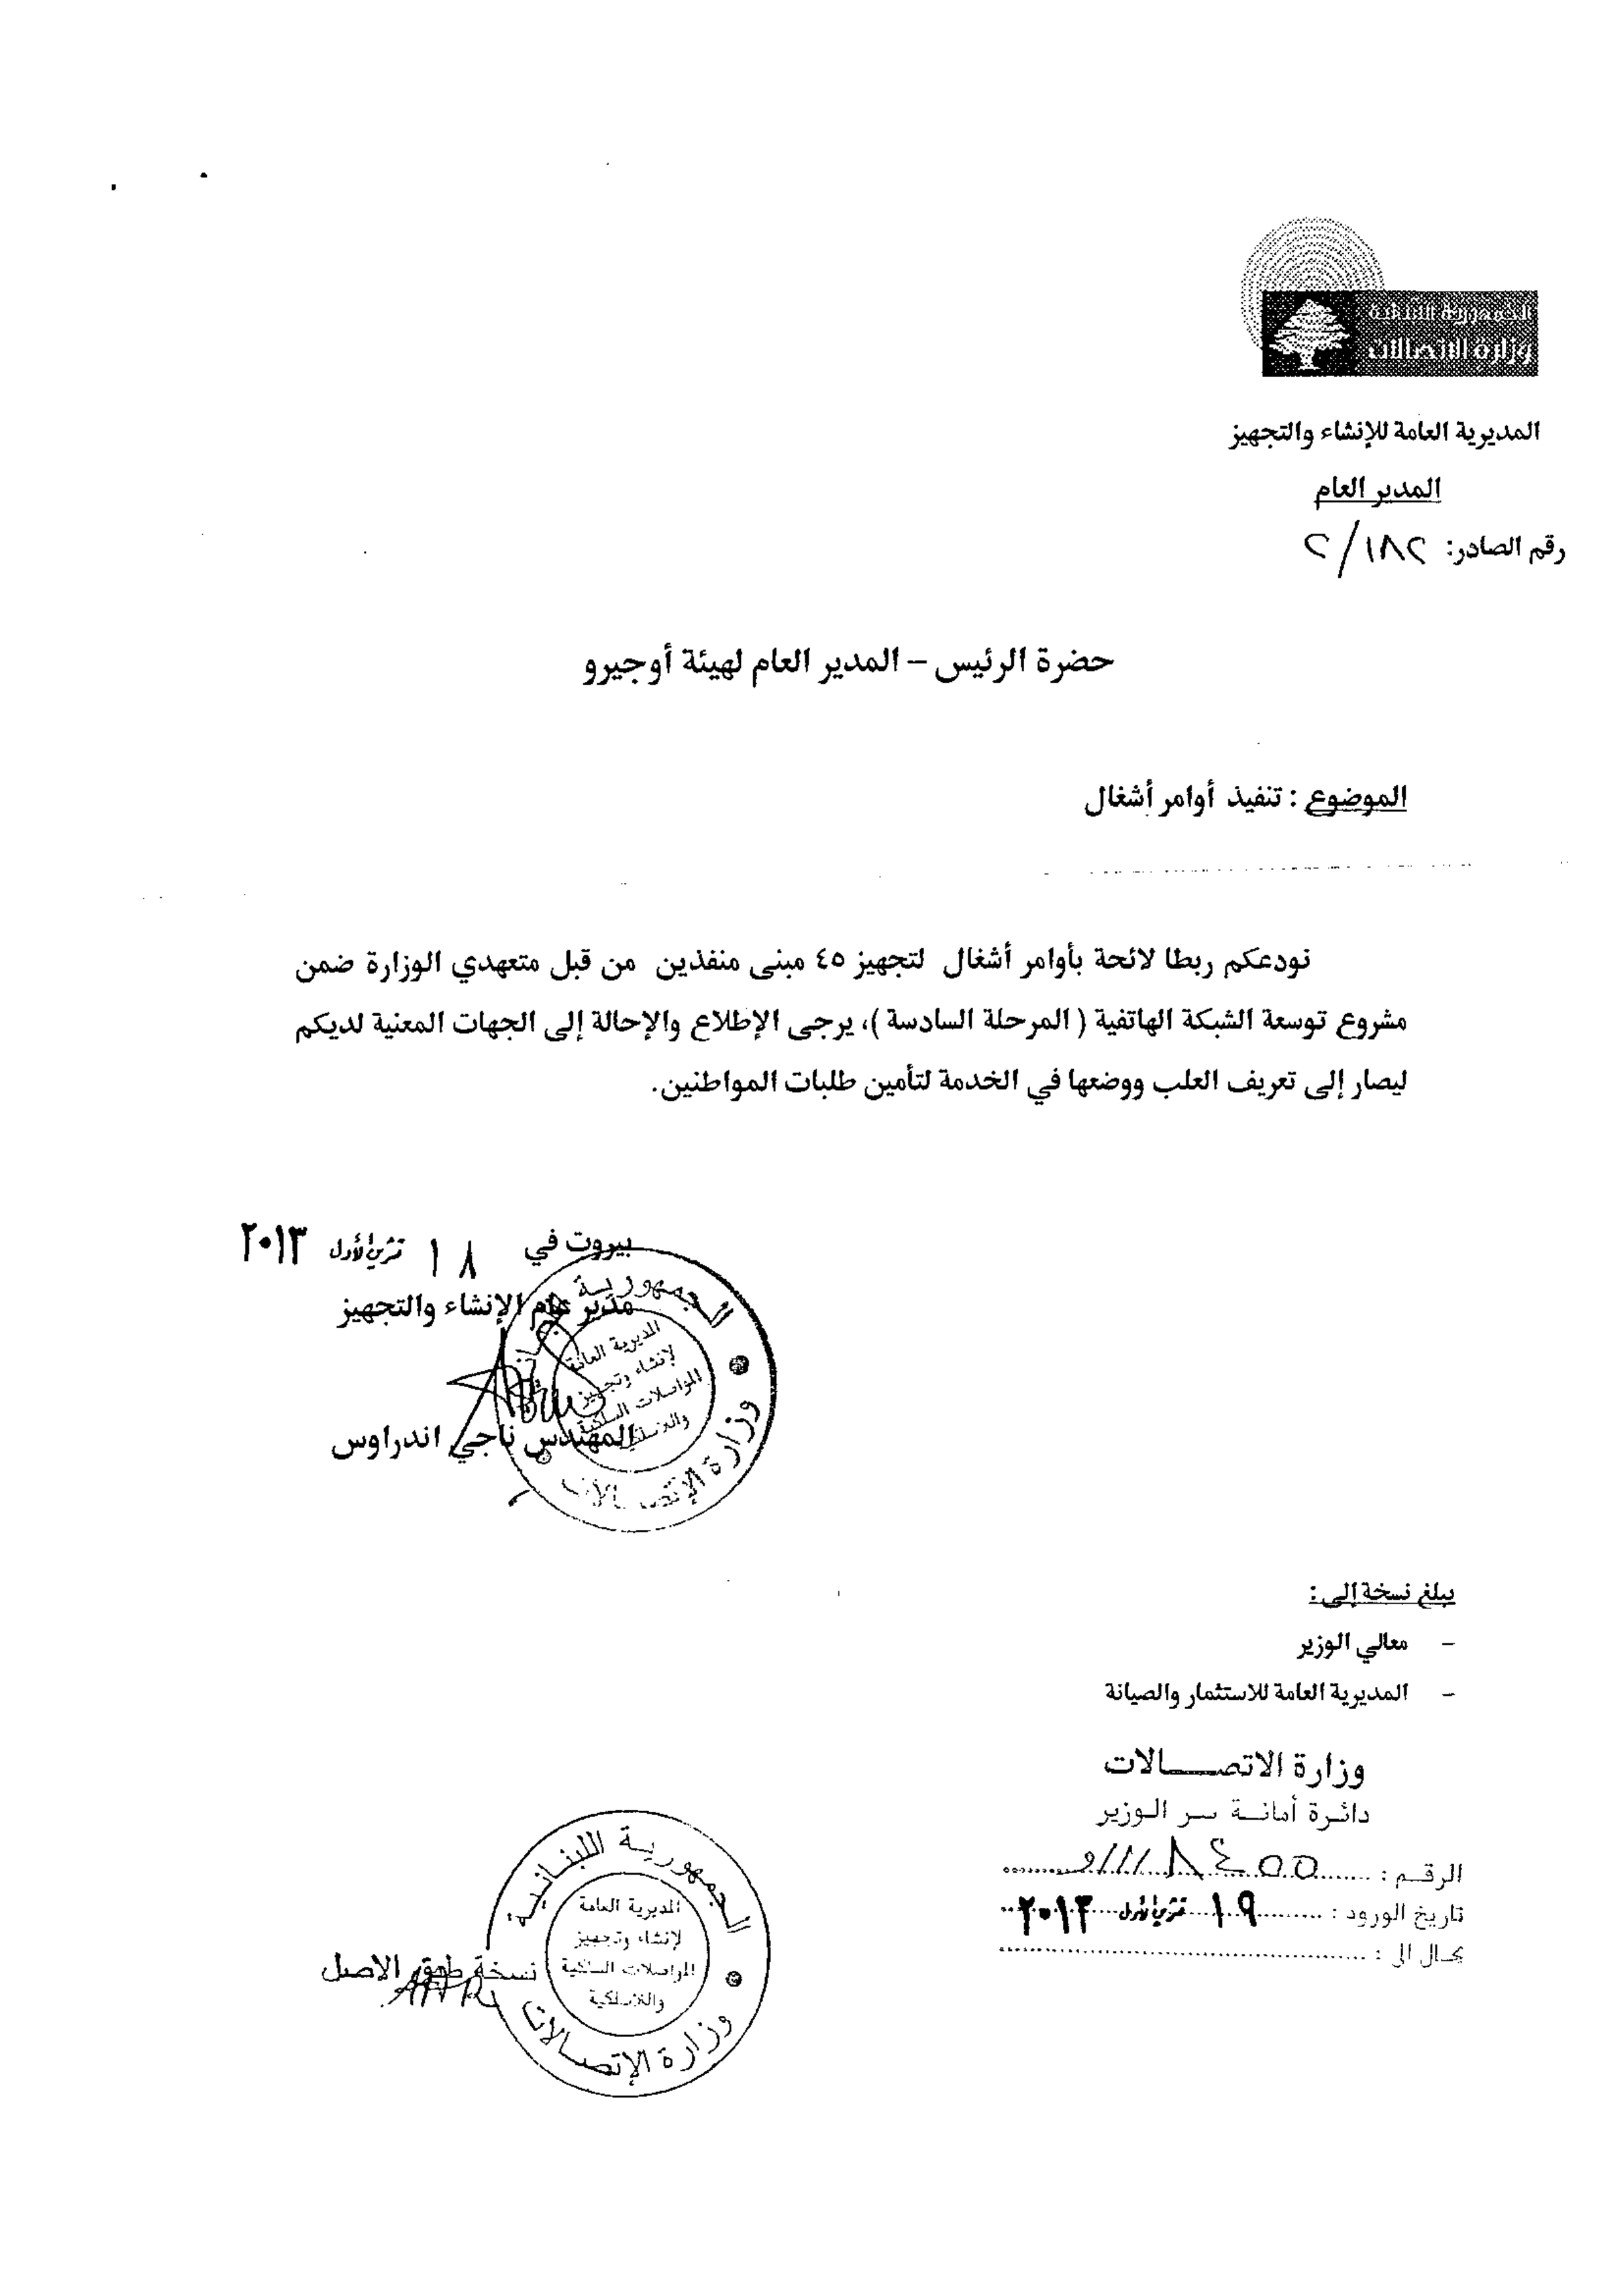 الجمهورية اللبنانية
وزارة الاتصالات
المديرية العامة للإنشاء والتجهيز
المدير العام
رقم الصادر: ٢/١٨٢
حضرة الرئيس – المدير العام لهيئة أوجيرو
الموضوع : تنفيذ أوامر أشغال
نودعكم ربطا لائحة بأوامر أشغال لتجهيز ٤٥ مبنى منفذين من قبل متعهدي الوزارة ضمن
مشروع توسعة الشبكة الهاتفية ( المرحلة السادسة )، يرجى الإطلاع والإحالة إلى الجهات المعنية لديكم
ليصار إلى تعريف العلب ووضعها في الخدمة لتأمين طلبات المواطنين.
بيروت في ١٨ تشرين الأول ٢٠١٣
مدير عام الإنشاء والتجهيز
المهندس ناجي اندراوس
الجمهورية
المديرية العامة
لإنشاء وتجهيز
المواصلات السلكية
وزارة الإتصالات
يبلغ نسخة إلى :
– معالي الوزير
– المديرية العامة للاستثمار والصيانة
وزارة الاتصـــالات
دائرة أمانة سر الوزير
الرقم : ٨٤٥٥/و
تاريخ الورود : ١٩ تشرين الأول ٢٠١٣
يحال الى :
الجمهورية اللبنانية
المديرية العامة
لإنشاء وتجهيز
المواصلات السلكية
واللاسلكية
وزارة الإتصالات
نسخة طبق الاصل